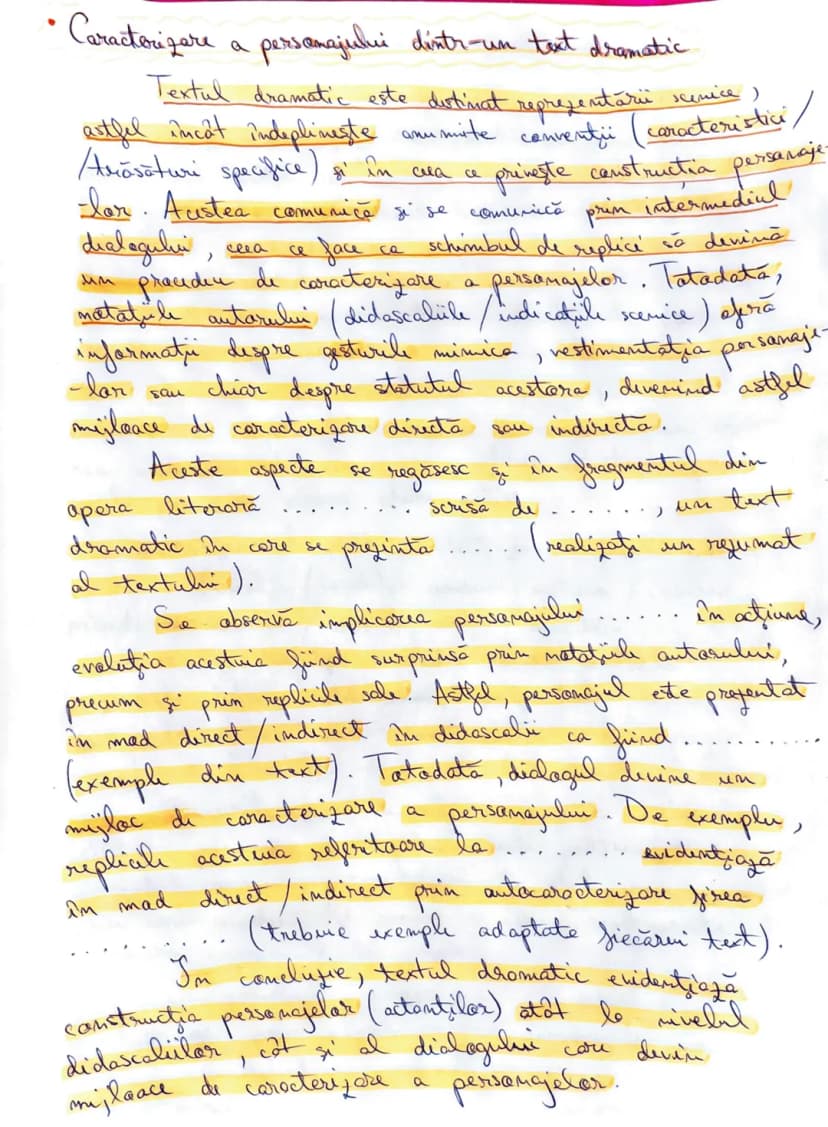 • Caracterizare a personajului dintr-un text dramatic
Textul dramatic este destinat reprezentării scenice,
astfel încât îndeplinește anumite convenții (caracteristici/
/trăsături specifice) și în ceea ce privește construcția personaje-
-lor. Acestea comunică și se comunică prin intermediul
dialogului, ceea ce face ca schimbul de replici să devină
un procedeu de caracterizare a personajelor. Totodată,
notațiile autorului (didascaliile/indicațiile scenice) oferă
informații despre gesturile mimica, vestimentația personaje-
-lor sau chiar despre statutul acestora, devenind astfel
mijloace de caracterizare directă sau indirectă.
Aceste aspecte se regăsesc și în fragmentul din
opera literară .......... scrisă de ......., un text
dramatic în care se prezintă ...... (realizați un rezumat
al textului).
Se observă implicarea personajului ...... în acțiune,
evoluția acestuia fiind surprinsă prin notațiile autorului,
precum și prin replicile sale. Astfel, personajul este prezentat
în mod direct/indirect în didascalii ca fiind ..........
(exemple din text). Totodată, dialogul devine un
mijloc de caracterizare a personajului. De exemplu,
replicile acestuia referitoare la ........ evidențiază
în mod direct/indirect prin autocaracterizare firea
.......... (trebuie exemple adaptate fiecărui text).
În concluzie, textul dramatic evidențiază
construcția personajelor (actanților) atât la nivelul
didascaliilor, cât și al dialogului care devin
mijloace de caracterizare a personajelor.